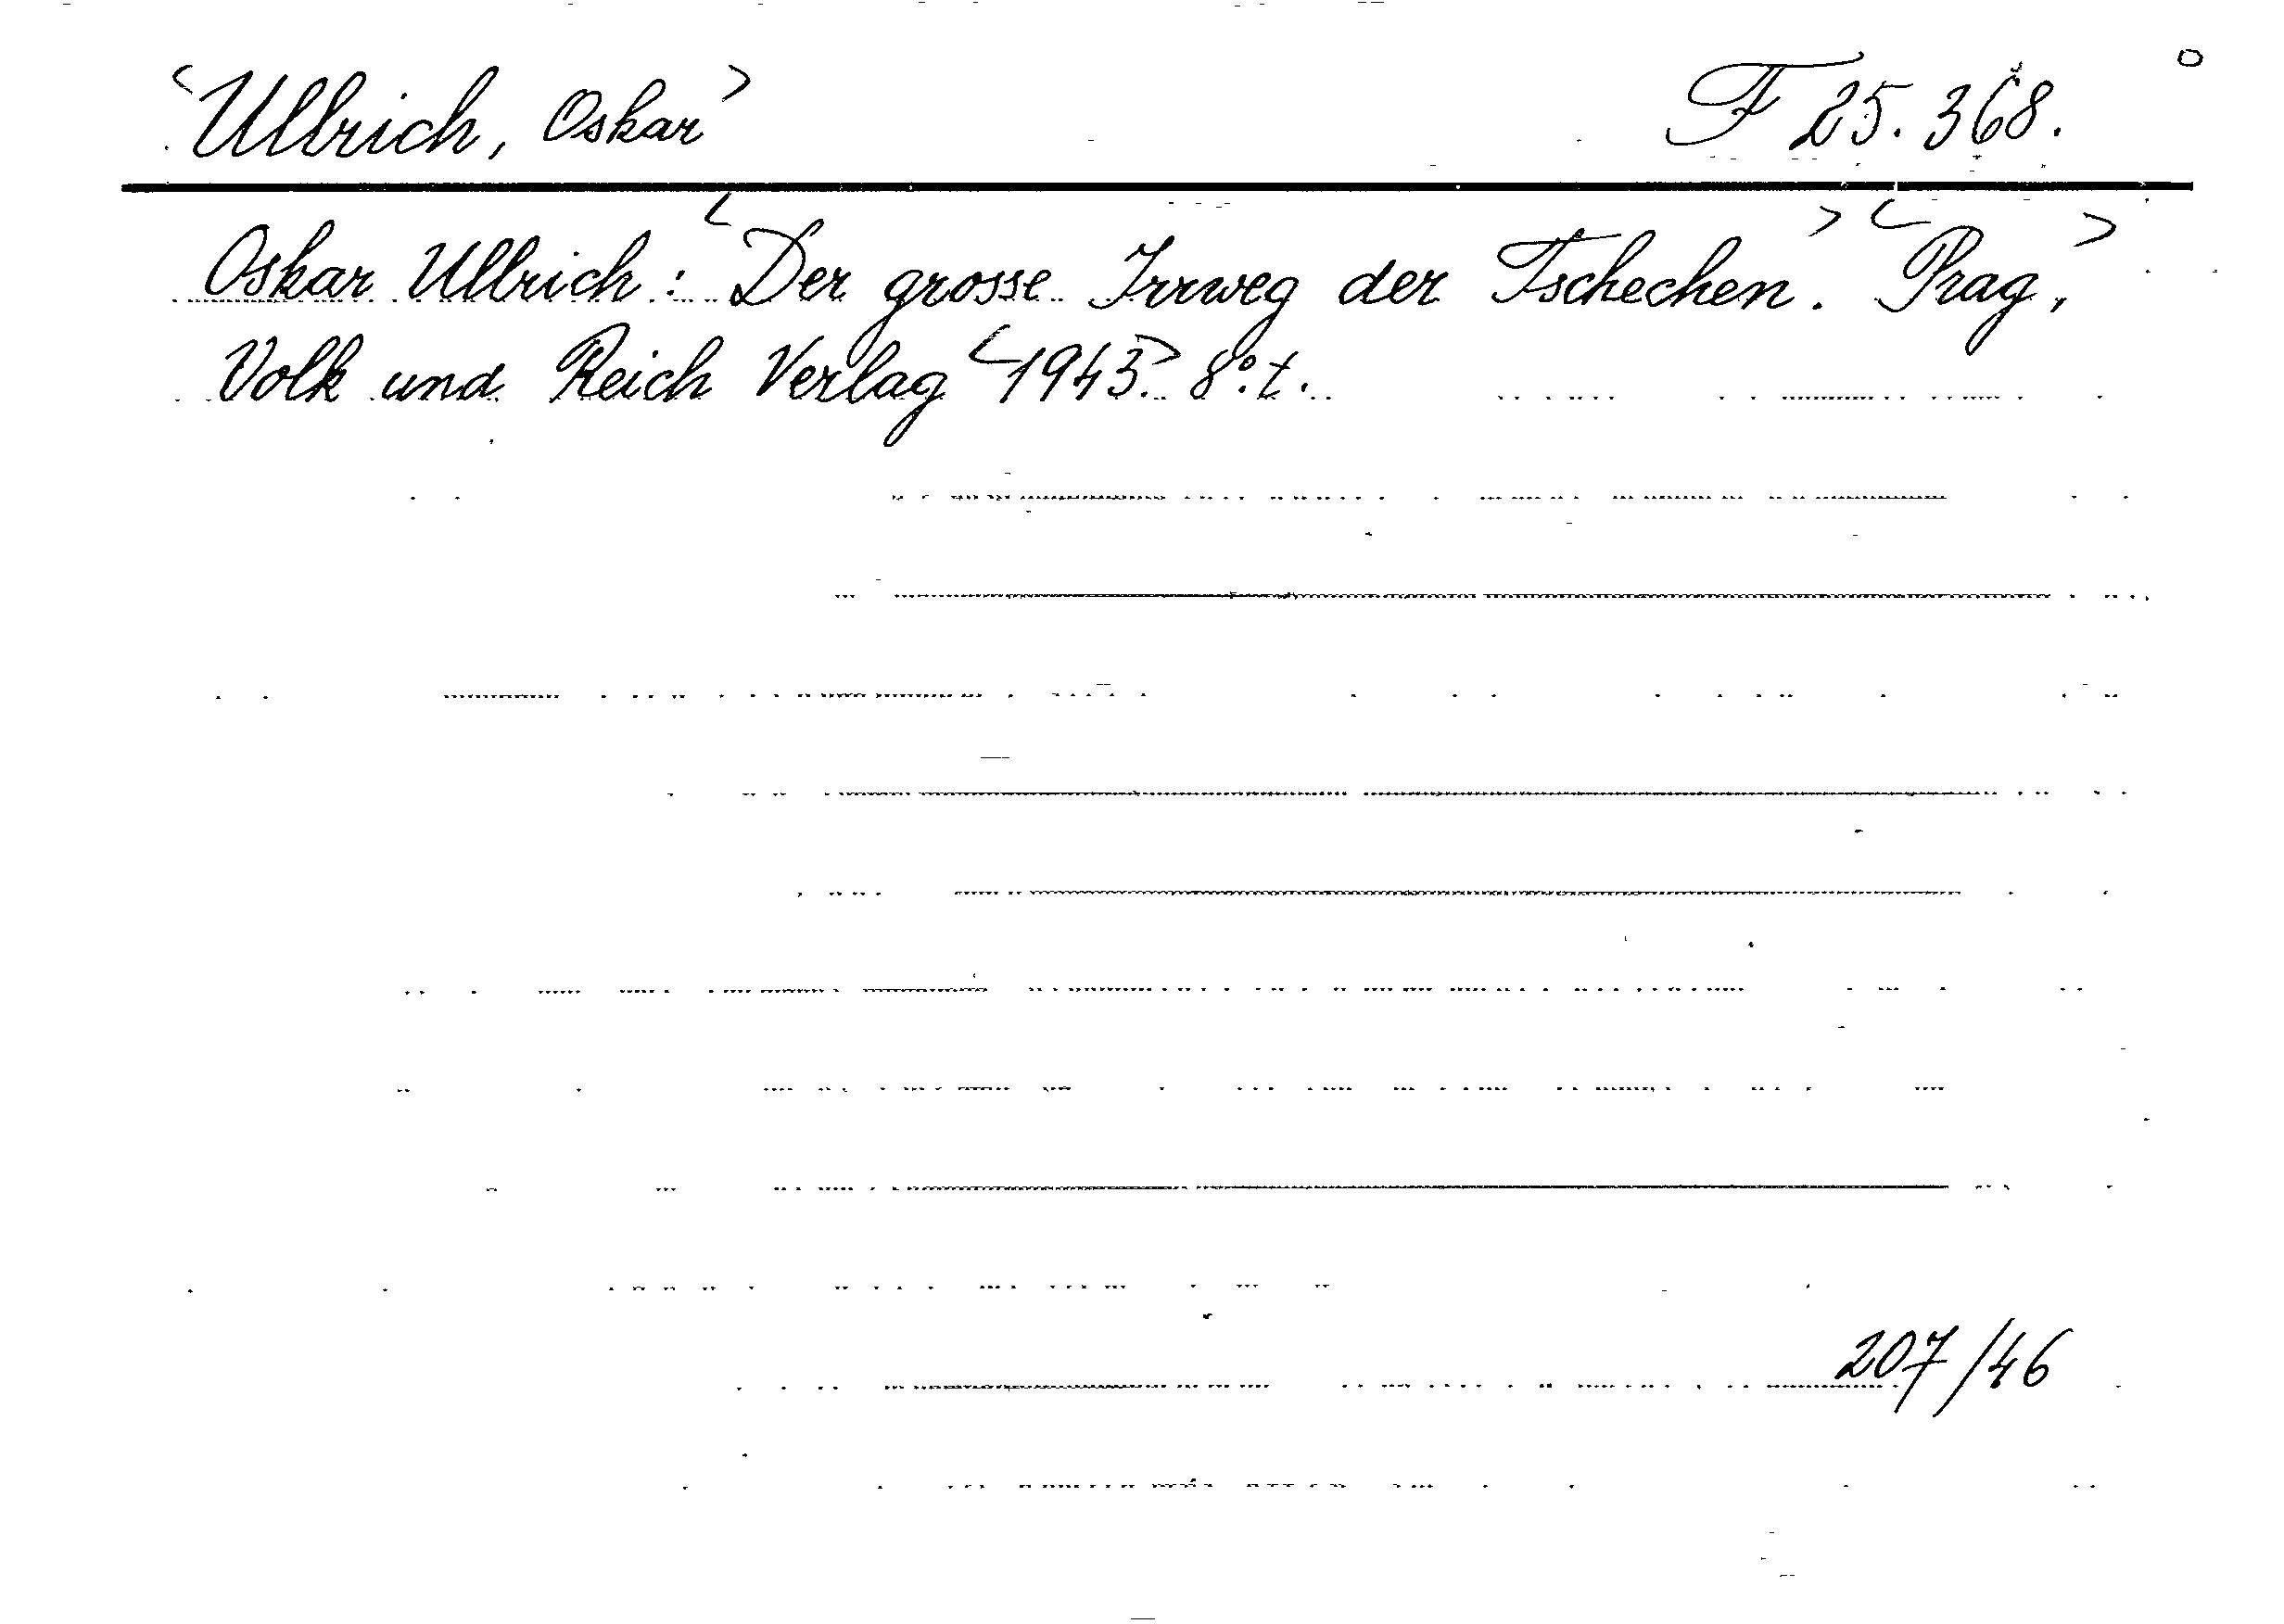 <Ullrich, Oskar> F 25.368.
Oskar Ullrich: <Der grosse Irrweg der Tschechen.> <Prag,>
Volk und Reich Verlag <1943.> 8°. t.
207/46